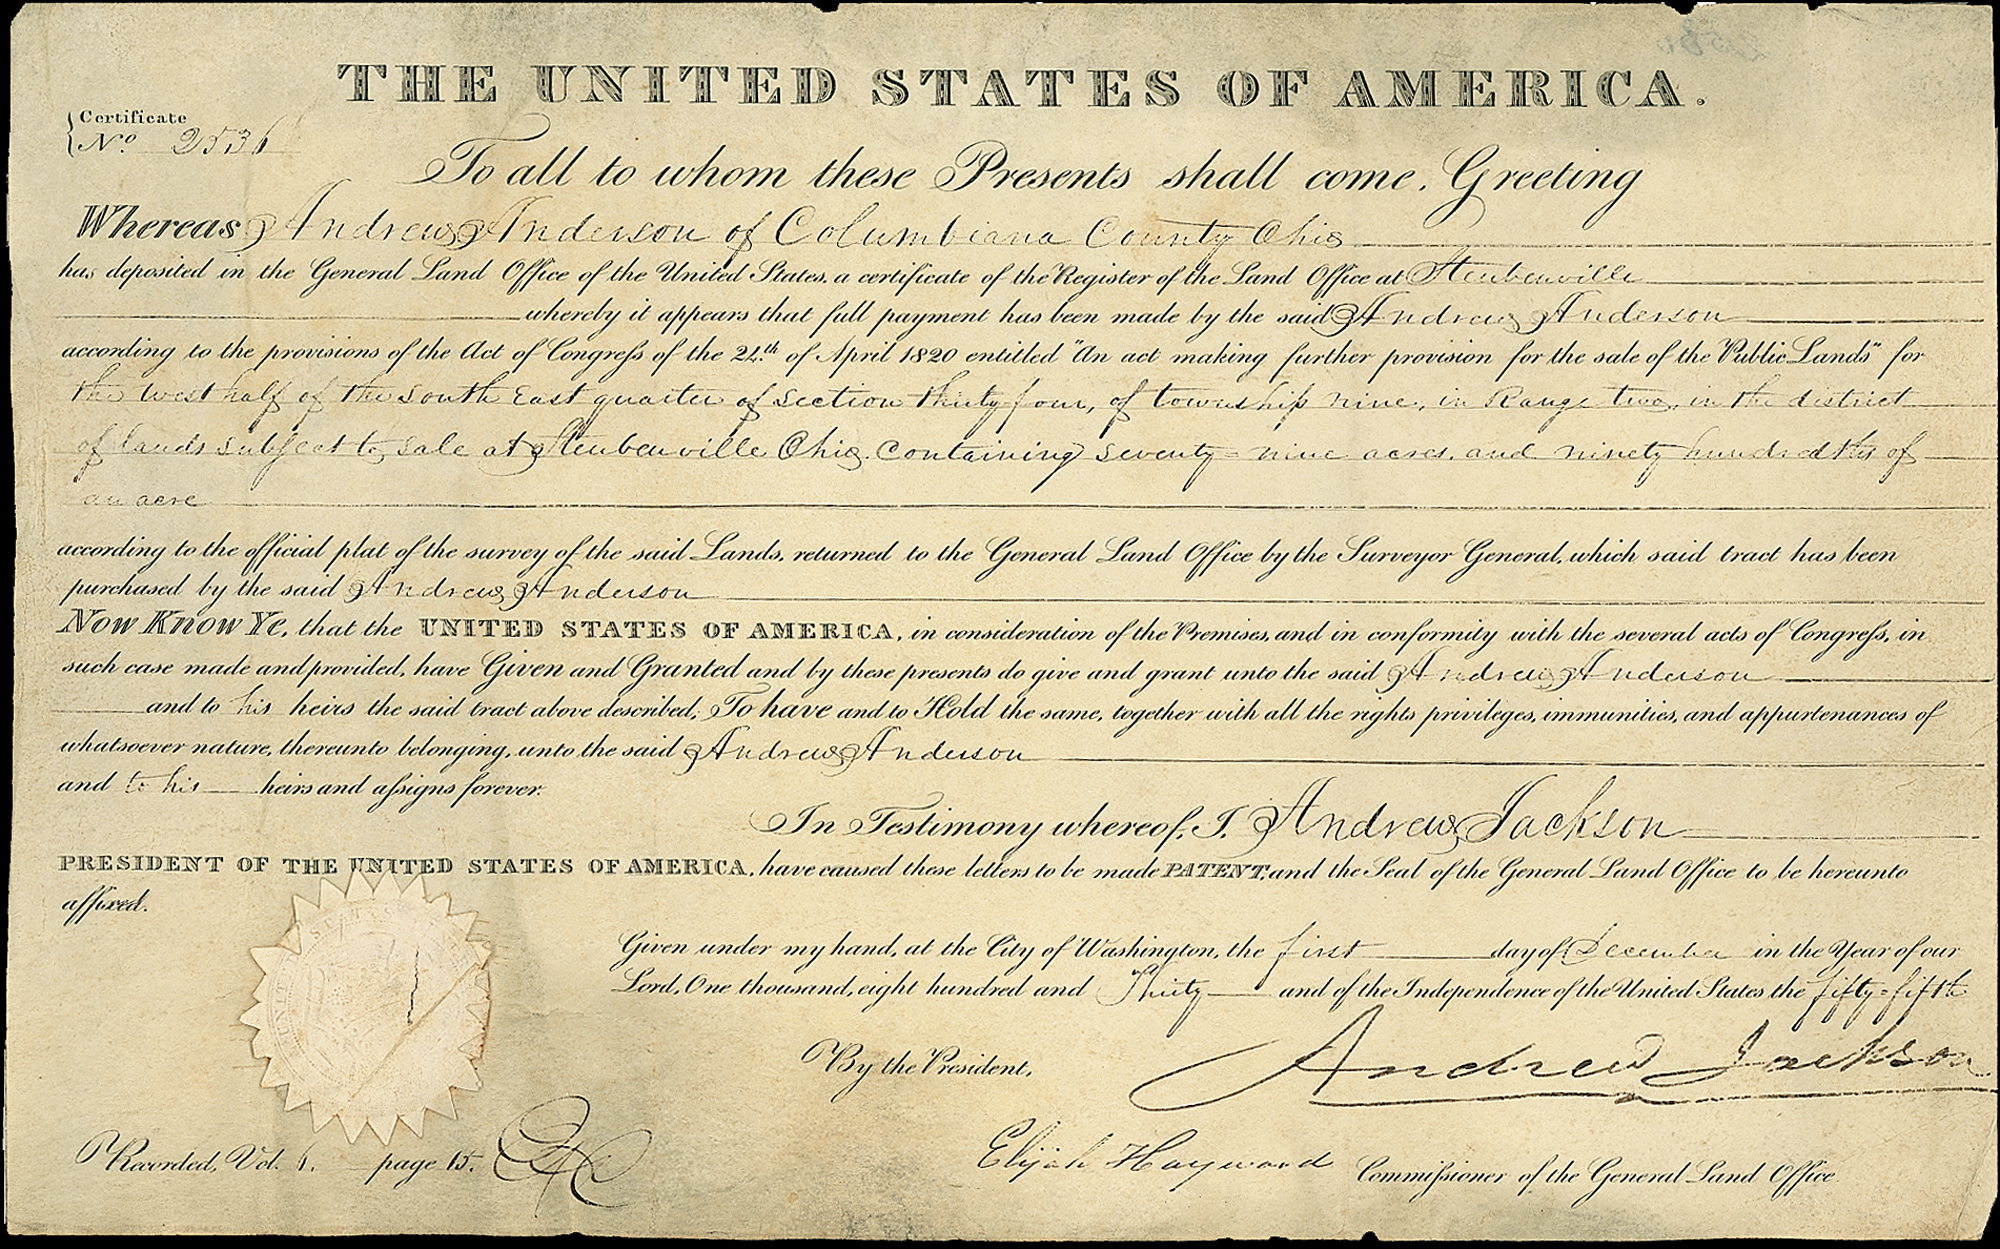 THE UNITED STATES OF AMERICA.
Certificate
No. 2536
To all to whom these Presents shall come, Greeting
Whereas Andrew Anderson of Columbiana County Ohio
has deposited in the General Land Office of the United States, a certificate of the Register of the Land Office at Steubenville
whereby it appears that full payment has been made by the said Andrew Anderson
according to the provisions of the Act of Congress of the 24th. of April 1820 entitled "An act making further provision for the sale of the Public Lands" for
the West half of the South East quarter of section thirty four, of township nine, in Range two, in the district
of lands subject to sale at Steubenville Ohio, containing seventy-nine acres, and ninety hundredths of
an acre
according to the official plat of the survey of the said Lands, returned to the General Land Office by the Surveyor General, which said tract has been
purchased by the said Andrew Anderson
Now Know Ye, that the UNITED STATES OF AMERICA, in consideration of the Premises, and in conformity with the several acts of Congress, in
such case made and provided, have Given and Granted and by these presents do give and grant unto the said Andrew Anderson
and to his heirs the said tract above described; To have and to Hold the same, together with all the rights privileges, immunities, and appurtenances of
whatsoever nature, thereunto belonging, unto the said Andrew Anderson
and to his heirs and assigns forever.
In Testimony whereof, I, Andrew Jackson
PRESIDENT OF THE UNITED STATES OF AMERICA, have caused these letters to be made PATENT, and the Seal of the General Land Office to be hereunto
affixed.
Given under my hand, at the City of Washington, the first day of December in the Year of our
Lord, One thousand, eight hundred and Thirty and of the Independence of the United States the fifty-fifth
By the President,
Andrew Jackson
Elijah Hayward Commissioner of the General Land Office
Recorded, Vol. 6. page 15.